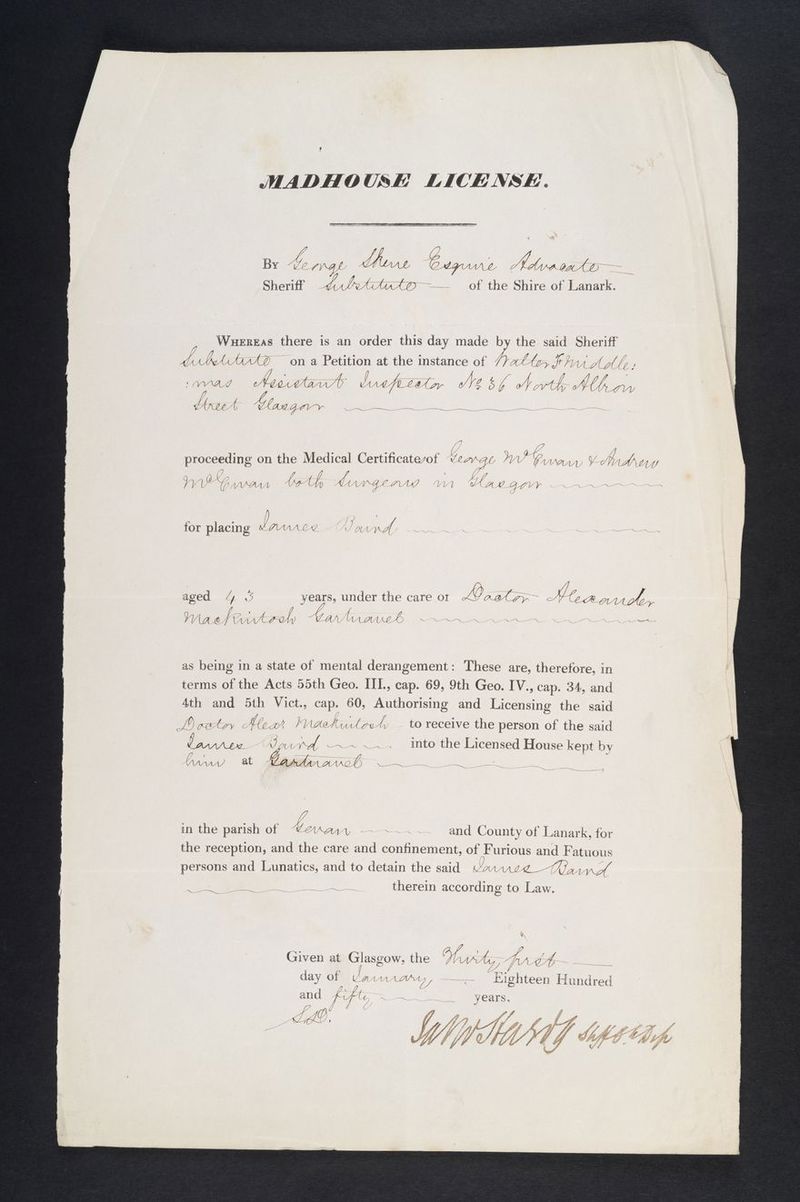 MADHOUSE LICENSE.
By George Skene Esquire Advocate
Sheriff Substitute of the Shire of Lanark.
Whereas there is an order this day made by the said Sheriff
Substitute on a Petition at the instance of Walter F Middle:
:mas Assistant Inspector No 36 North Albion
Street Glasgow
proceeding on the Medical Certificates of George McEwan & Andrew
McEwan both Surgeons in Glasgow
for placing James Baird
aged 43 years, under the care of Doctor Alexander
Mackintosh Gartnavel
as being in a state of mental derangement: These are, therefore, in
terms of the Acts 55th Geo. III., cap. 69, 9th Geo. IV., cap. 34, and
4th and 5th Vict., cap. 60, Authorising and Licensing the said
Doctor Alexr Mackintosh to receive the person of the said
James Baird into the Licensed House kept by
him at Gartnavel
in the parish of Govan and County of Lanark, for
the reception, and the care and confinement, of Furious and Fatuous
persons and Lunatics, and to detain the said James Baird
therein according to Law.
Given at Glasgow, the Thirty first
day of January, Eighteen Hundred
and fifty years.
Hardy